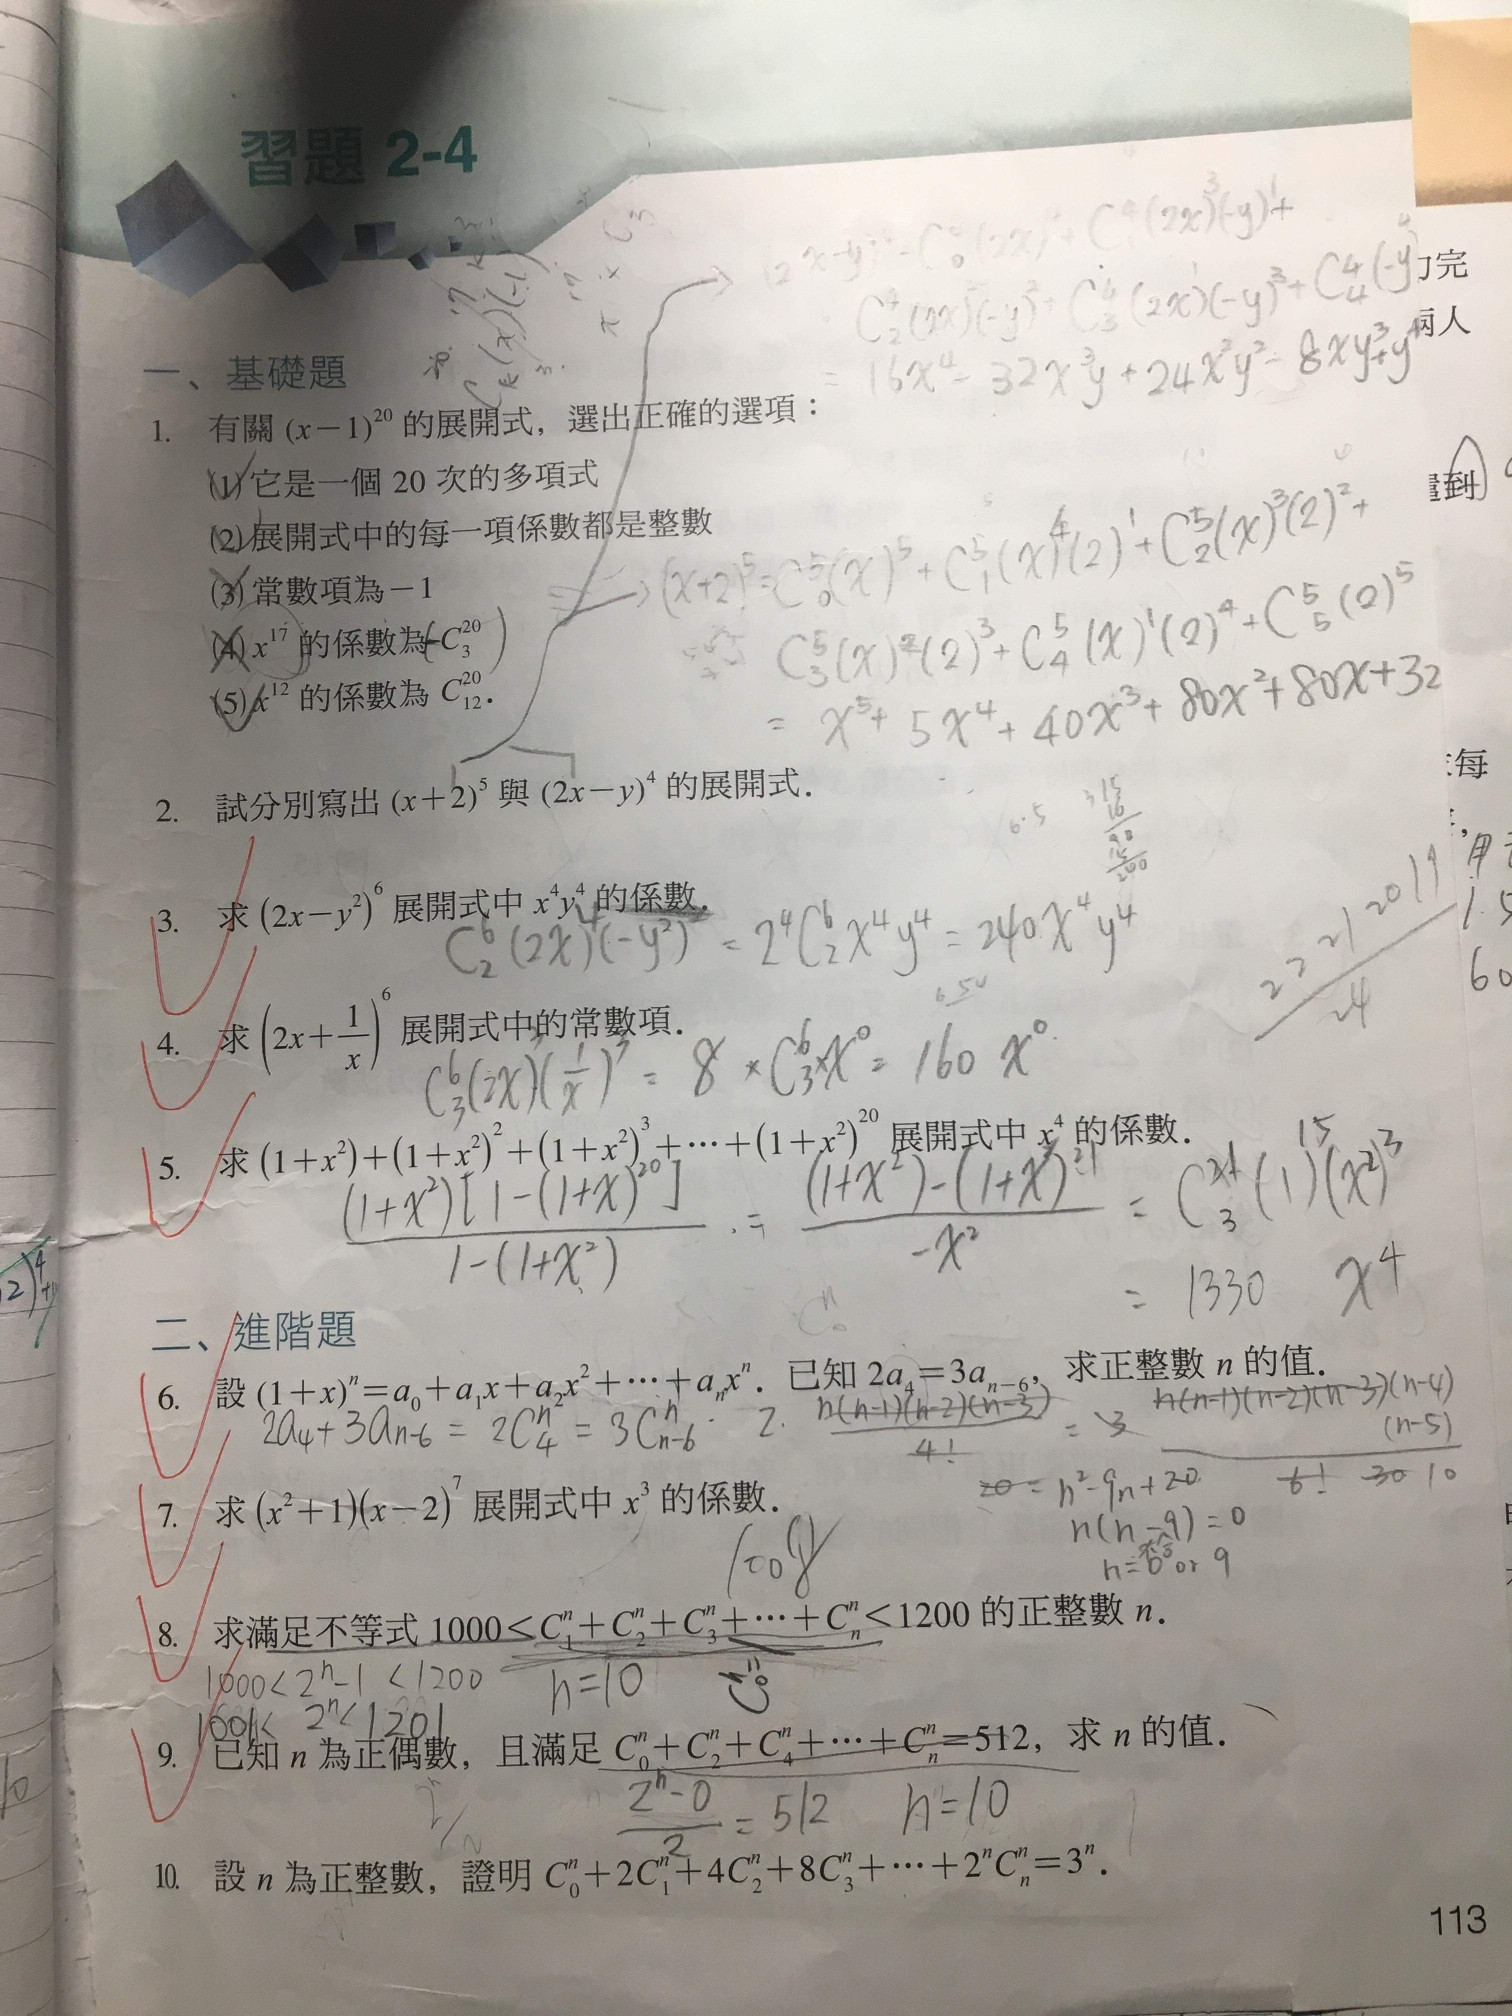 習題 2-4
(2x-y)⁴=C⁴₀(2x)⁴+C⁴₁(2x)³(-y)¹+
C⁴₂(2x)²(-y)²+C⁴₃(2x)¹(-y)³+C⁴₄(-y)⁴
=16x⁴-32x³y+24x²y²-8xy³+y⁴
一、基礎題
1. 有關 (x-1)²⁰ 的展開式，選出正確的選項：
(1) 它是一個 20 次的多項式
(2) 展開式中的每一項係數都是整數
(3) 常數項為-1
(4) x¹⁷ 的係數為(-C²⁰₃)
(5) x¹² 的係數為 C²⁰₁₂.
(x+2)⁵=C⁵₀(x)⁵+C⁵₁(x)⁴(2)¹+C⁵₂(x)³(2)²+
C⁵₃(x)²(2)³+C⁵₄(x)¹(2)⁴+C⁵₅(2)⁵
=x⁵+5x⁴+40x³+80x²+80x+32
2. 試分別寫出 (x+2)⁵ 與 (2x-y)⁴ 的展開式.
3. 求 (2x-y²)⁶ 展開式中 x⁴y⁴ 的係數.
C⁶₂(2x)⁴(-y²)²=2⁴C⁶₂x⁴y⁴=240x⁴y⁴
22 21 20 19
24
4. 求 (2x+1/x)⁶ 展開式中的常數項.
C⁶₃(2x)³(1/x)³=8×C⁶₃×x⁰=160 x⁰
5. 求 (1+x²)+(1+x²)²+(1+x²)³+⋯+(1+x²)²⁰ 展開式中 x⁴ 的係數.
(1+x²)[1-(1+x)²⁰]/1-(1+x²)=(1+x²)-(1+x²)²¹/-x²=C²¹₃(1)¹⁵(x²)³
=1330 x⁴
二、進階題
6. 設 (1+x)ⁿ=a₀+a₁x+a₂x²+⋯+aₙxⁿ. 已知 2a₄=3aₙ₋₆，求正整數 n 的值.
2a₄+3aₙ₋₆=2Cⁿ₄=3Cⁿₙ₋₆ 2·n(n-1)(n-2)(n-3)/4!=3 n(n-1)(n-2)(n-3)(n-4)(n-5)/6! 30 10
20=n²-9n+20
n(n-9)=0
n=0 or 9
7. 求 (x²+1)(x-2)⁷ 展開式中 x³ 的係數.
1008
8. 求滿足不等式 1000<Cⁿ₁+Cⁿ₂+Cⁿ₃+⋯+Cⁿₙ<1200 的正整數 n.
1000<2ⁿ-1<1200 n=10
1001<2ⁿ<1201
9. 已知 n 為正偶數，且滿足 Cⁿ₀+Cⁿ₂+Cⁿ₄+⋯+Cⁿₙ=512，求 n 的值.
2ⁿ-0/2=512 n=10
10. 設 n 為正整數，證明 Cⁿ₀+2Cⁿ₁+4Cⁿ₂+8Cⁿ₃+⋯+2ⁿCⁿₙ=3ⁿ.
113